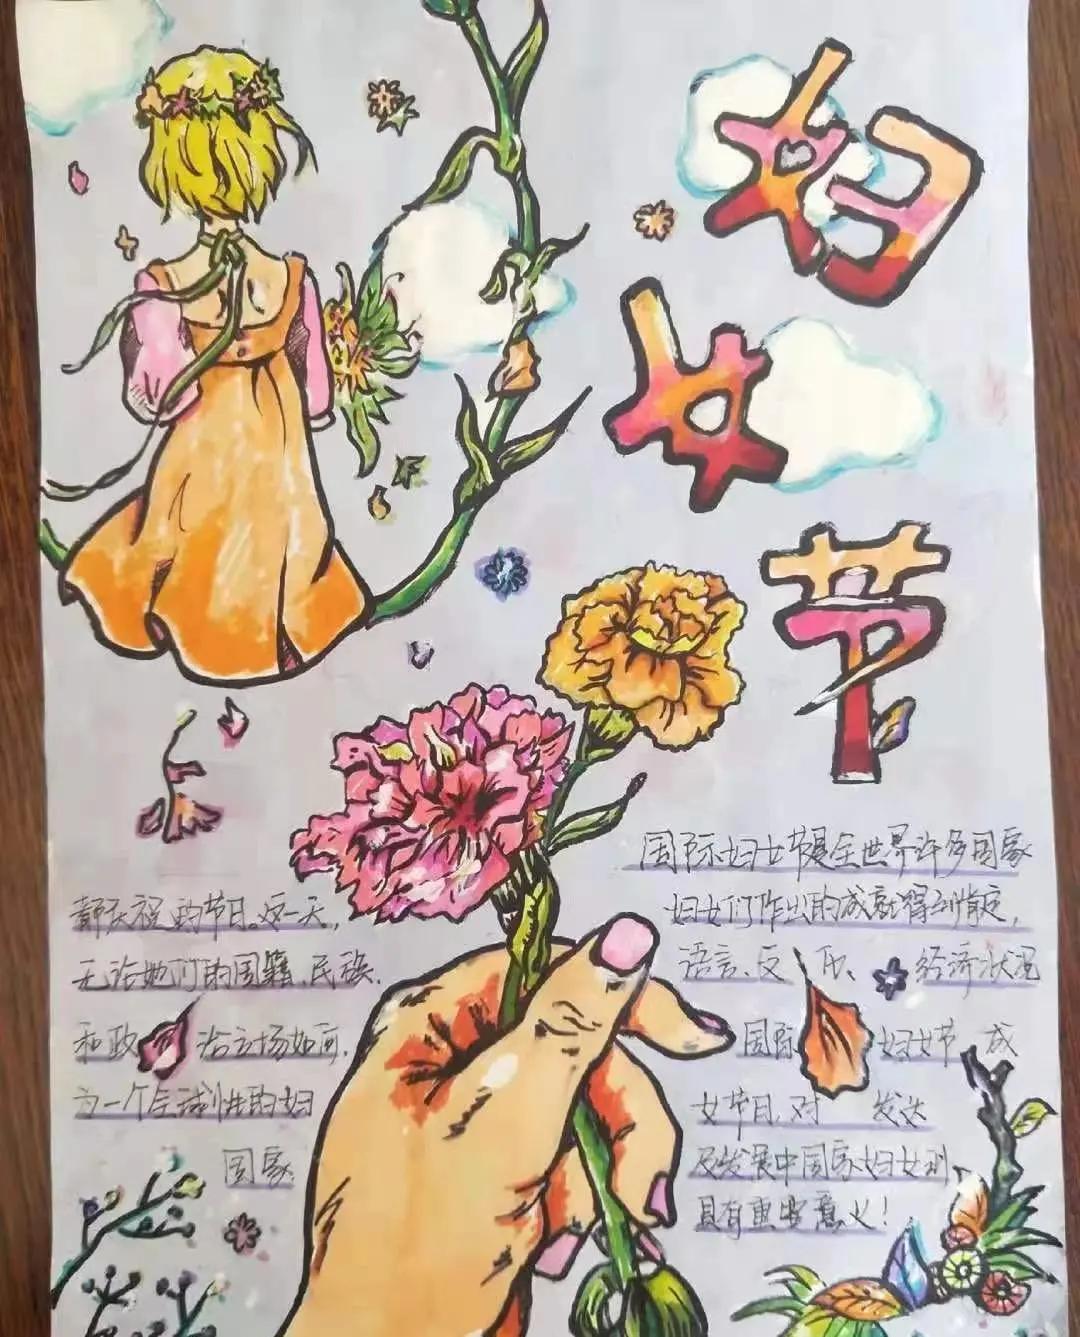 妇女节
国际妇女节是全世界许多国家
都庆祝的节日。这一天,
妇女们作出的成就得到肯定,
无论她们的国籍、民族、
语言、 经济状况
和政治立场如何,
国际妇女节 成
为一个全球性的妇
女节日,对 发达
国家
及发展中国家妇女
具有重要意义!